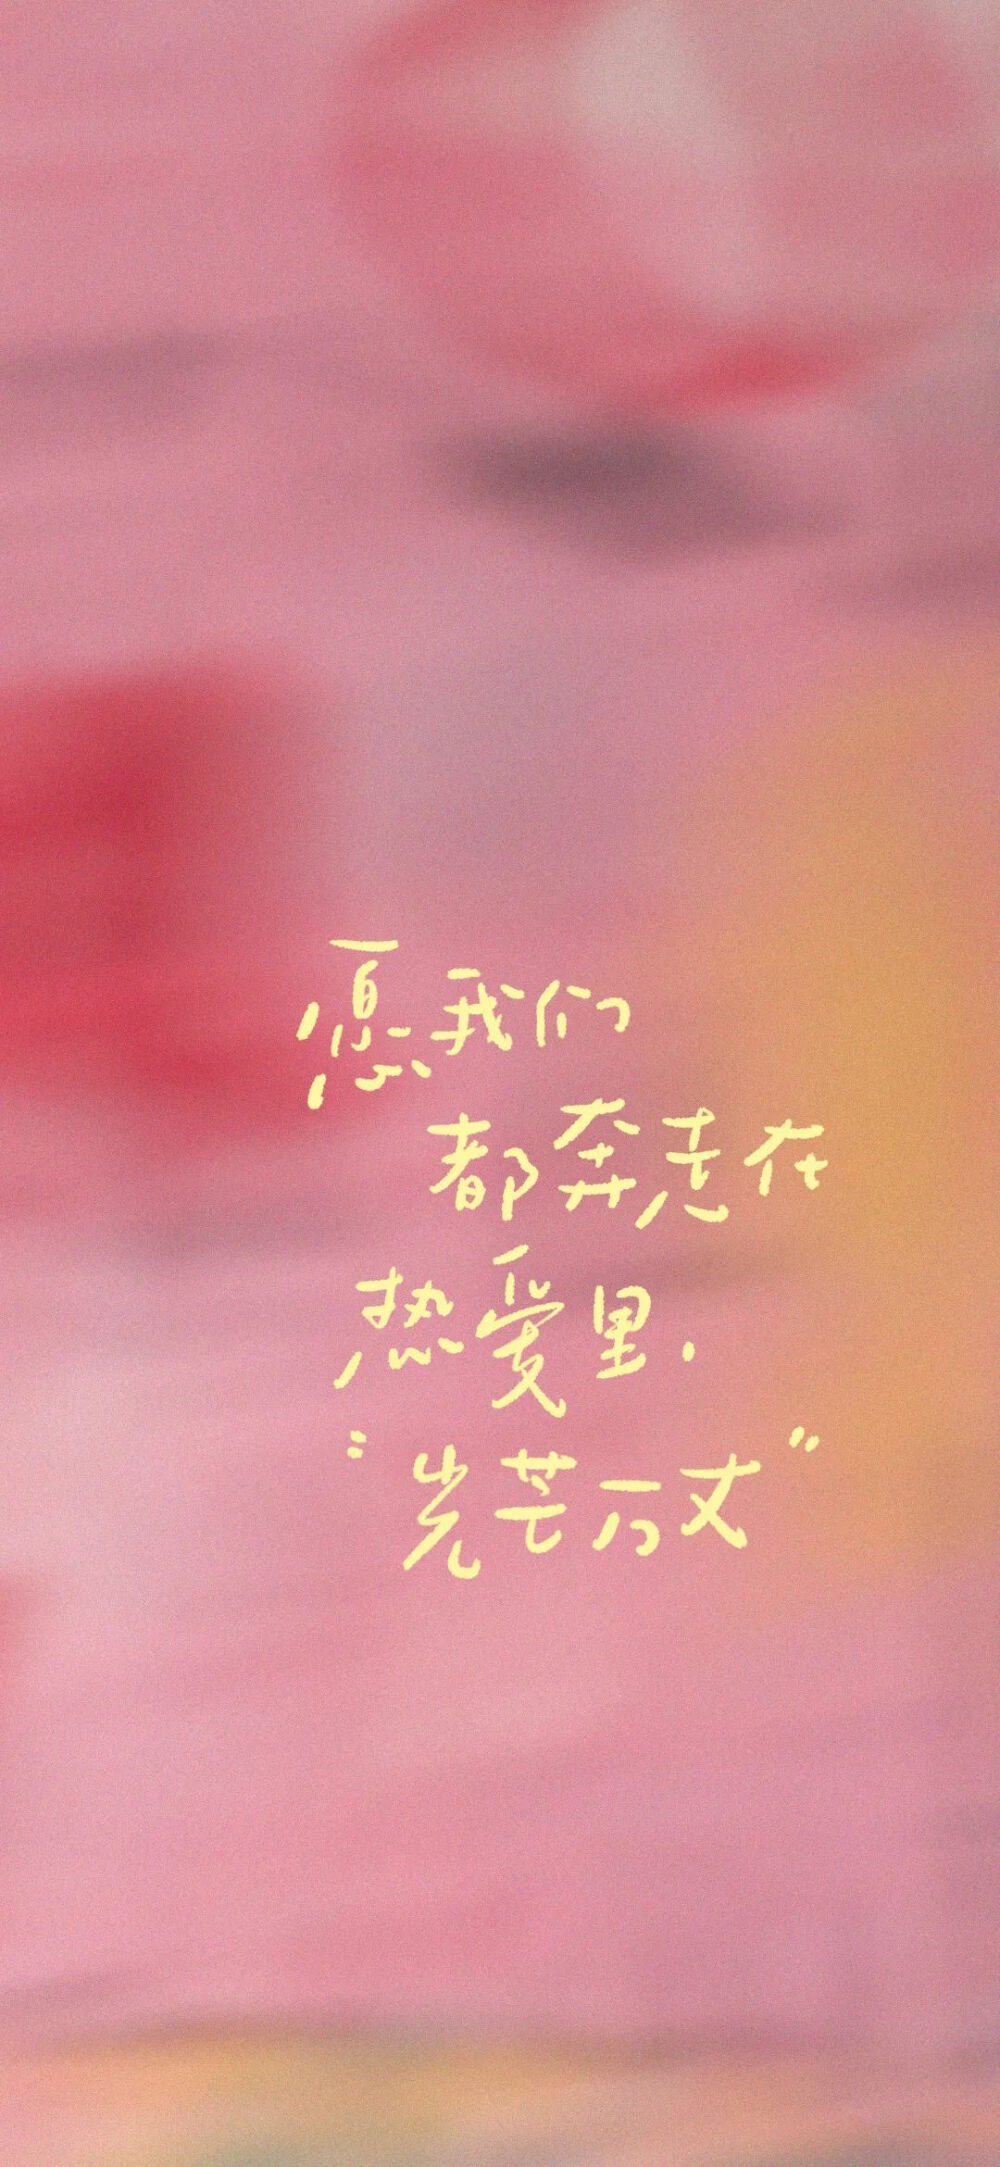 愿我们
都奔走在
热爱里.
“光芒万丈”